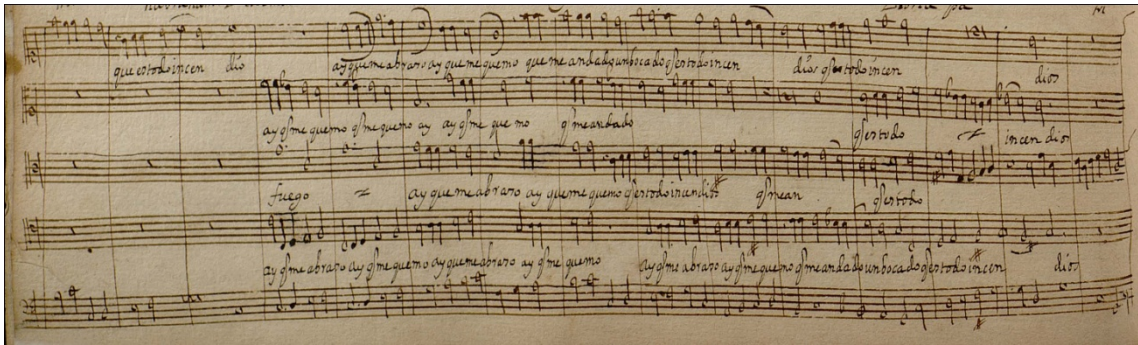 que es todo incen dio ay que me abraso ay que me quemo que me an dado un bocado q̃ es todo incen dios q̃ es todo incen dios
ay q̃ me quemo q̃ me quemo ay ay q̃ me que mo q̃ me an dado q̃ es todo incen dios
fuego ay que me abraso ay que me quemo q̃ es todo incendios q̃ me an q̃ es todo
ay q̃ me abraso ay q̃ me quemo ay que me abraso ay q̃ me quemo ay q̃ me abraso ay q̃ me quemo q̃ me an dado un bocado q̃ es todo incen dios